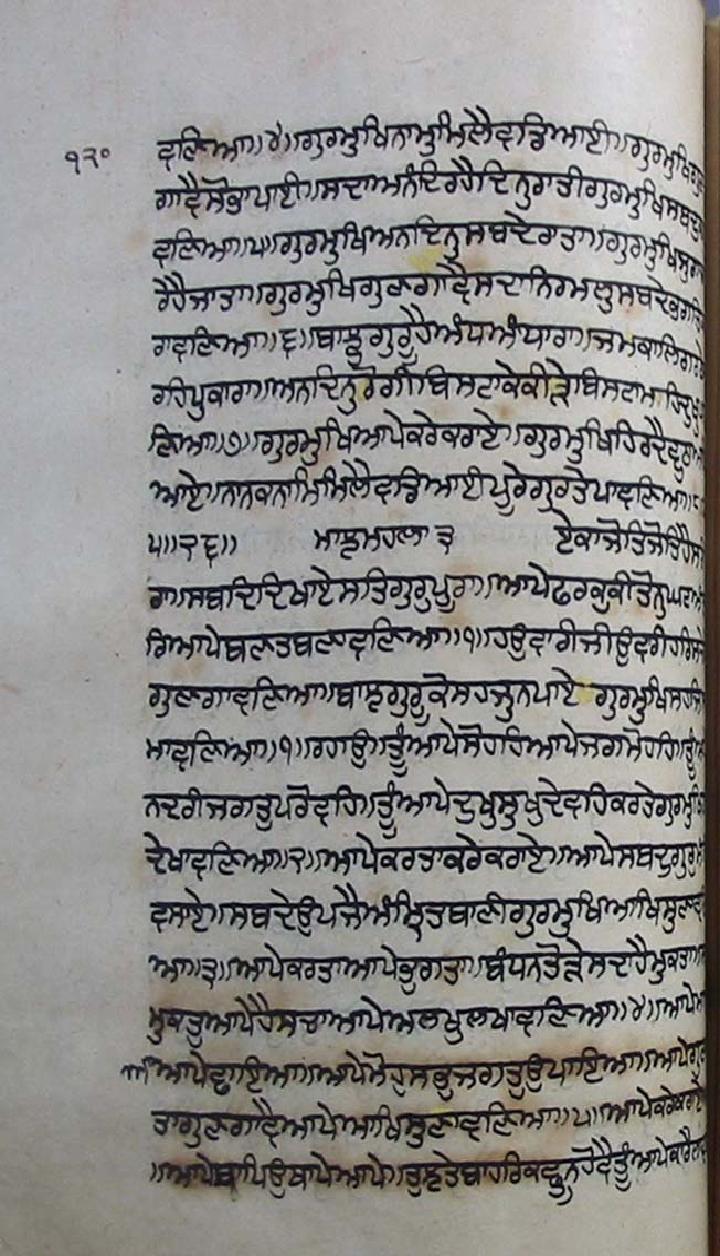 ੧੨੦
ਵਣਿਆ॥੪॥ਗੁਰਮੁਖਿਨਾਮੁਮਿਲੈਵਡਿਆਈ॥ਗੁਰਮੁਖਿਗੁਣ
ਗਾਵੈਸੋਭਾਪਾਈ॥ਸਦਾਅਨੰਦਿਰਹੈਦਿਨੁਰਾਤੀਗੁਰਮੁਖਿਸਬਦੁ
ਵਣਿਆ॥੫॥ਗੁਰਮੁਖਿਅਨਦਿਨੁਸਬਦੇਰਾਤਾ॥ਗੁਰਮੁਖਿਜੁਗ
ਰੈਹੈਜਾਤਾ॥ਗੁਰਮੁਖਿਗੁਣਗਾਵੈਸਦਾਨਿਰਮਲੁਸਬਦੇਭਗਤਿ
ਰਾਵਣਿਆ॥੬॥ਬਾਝੁਗੁਰੂਹੈਅੰਧਅੰਧਾਰਾ॥ਜਮਕਾਲਿਗਰਠੇ
ਰਹਿਪੁਕਾਰਾ॥ਅਨਦਿਨੁਰੋਗੀਬਿਸਟਾਕੇਕੀੜੇਬਿਸਟਾਮਹਿਦੁਖੁ
ਣਿਆ॥੭॥ਗੁਰਮੁਖਿਆਪੇਕਰੇਕਰਾਏ॥ਗੁਰਮੁਖਿਹਿਰਦੈਵੁਠਾ
ਆਏ॥ਨਾਨਕਨਾਮਿਮਿਲੈਵਡਿਆਈਪੂਰੇਗੁਰਤੇਪਾਵਣਿਆ॥੮
੫॥੨੬॥ ਮਾਝਮਹਲਾ ੩ ਏਕਾਜੋਤਿਜੋਤਿਹੈਸ
ਰਾ॥ਸਬਦਿਦਿਖਾਏਸਤਿਗੁਰੁਪੂਰਾ॥ਆਪੇਫਰਕੁਕੀਤੋਨੁਘਟਅੰ
ਰਿਆਪੇਬਣਤਬਣਾਵਣਿਆ॥੧॥ਹਉਵਾਰੀਜੀਉਵਰੀਹਰਿਸਚੇ
ਗੁਣਗਾਵਣਿਆ॥ਬਾਝੁਗੁਰੂਕੋਸਹਜੁਨਪਾਏ ਗੁਰਮੁਖਿਸਹਜਿ
ਮਾਵਣਿਆ॥੧॥ਰਹਾਉ॥ਤੂੰਆਪੇਸੋਹਹਿਆਪੇਜਗਮੋਹਹਿ॥ਤੂੰਆ
ਨਦਰੀਜਗਤੁਪਰੋਵਹਿ॥ਤੂੰਆਪੇਦੁਖੁਸੁਖੁਦੇਵਹਿਕਰਤੇਗੁਰਮੁਖਿ
ਦੇਖਾਵਣਿਆ॥੨॥ਆਪੇਕਰਤਾਕਰੇਕਰਾਏ॥ਆਪੇਸਬਦੁਗੁਰਮ
ਵਸਾਏ॥ਸਬਦੇਉਪਜੈਅੰਮ੍ਰਿਤਬਾਣੀਗੁਰਮੁਖਿਆਖਿਸੁਣਾਵ
ਆ॥੩॥ਆਪੇਕਰਤਾਆਪੇਭੁਗਤਾ॥ਬੰਧਨਤੋੜੇਸਦਾਹੈਮੁਕਤਾ॥
ਮੁਕਤੁਆਪੇਹੈਸਚਾਆਪੇਅਲਖੁਲਖਾਵਣਿਆ॥੪॥ਆਪੇਮਾ
ਆਪੇਛਾਇਆ॥ਆਪੇਮੋਹੁਸਭੁਜਗਤੁਉਪਾਇਆ॥ਆਪੇਗੁਣ
ਤਾਗੁਣਗਾਵੈਆਪੇਆਖਿਸੁਣਾਵਣਿਆ॥੫॥ਆਪੇਕਰੇਕਰਾਏ
॥ਆਪੇਥਾਪਿਉਥਾਪੇਆਪੇ॥ਤੁਝਤੇਬਾਹਰਿਕਛੂਨਹੋਵੈਤੂੰਆਪੇਕਾਰੈਲਾ